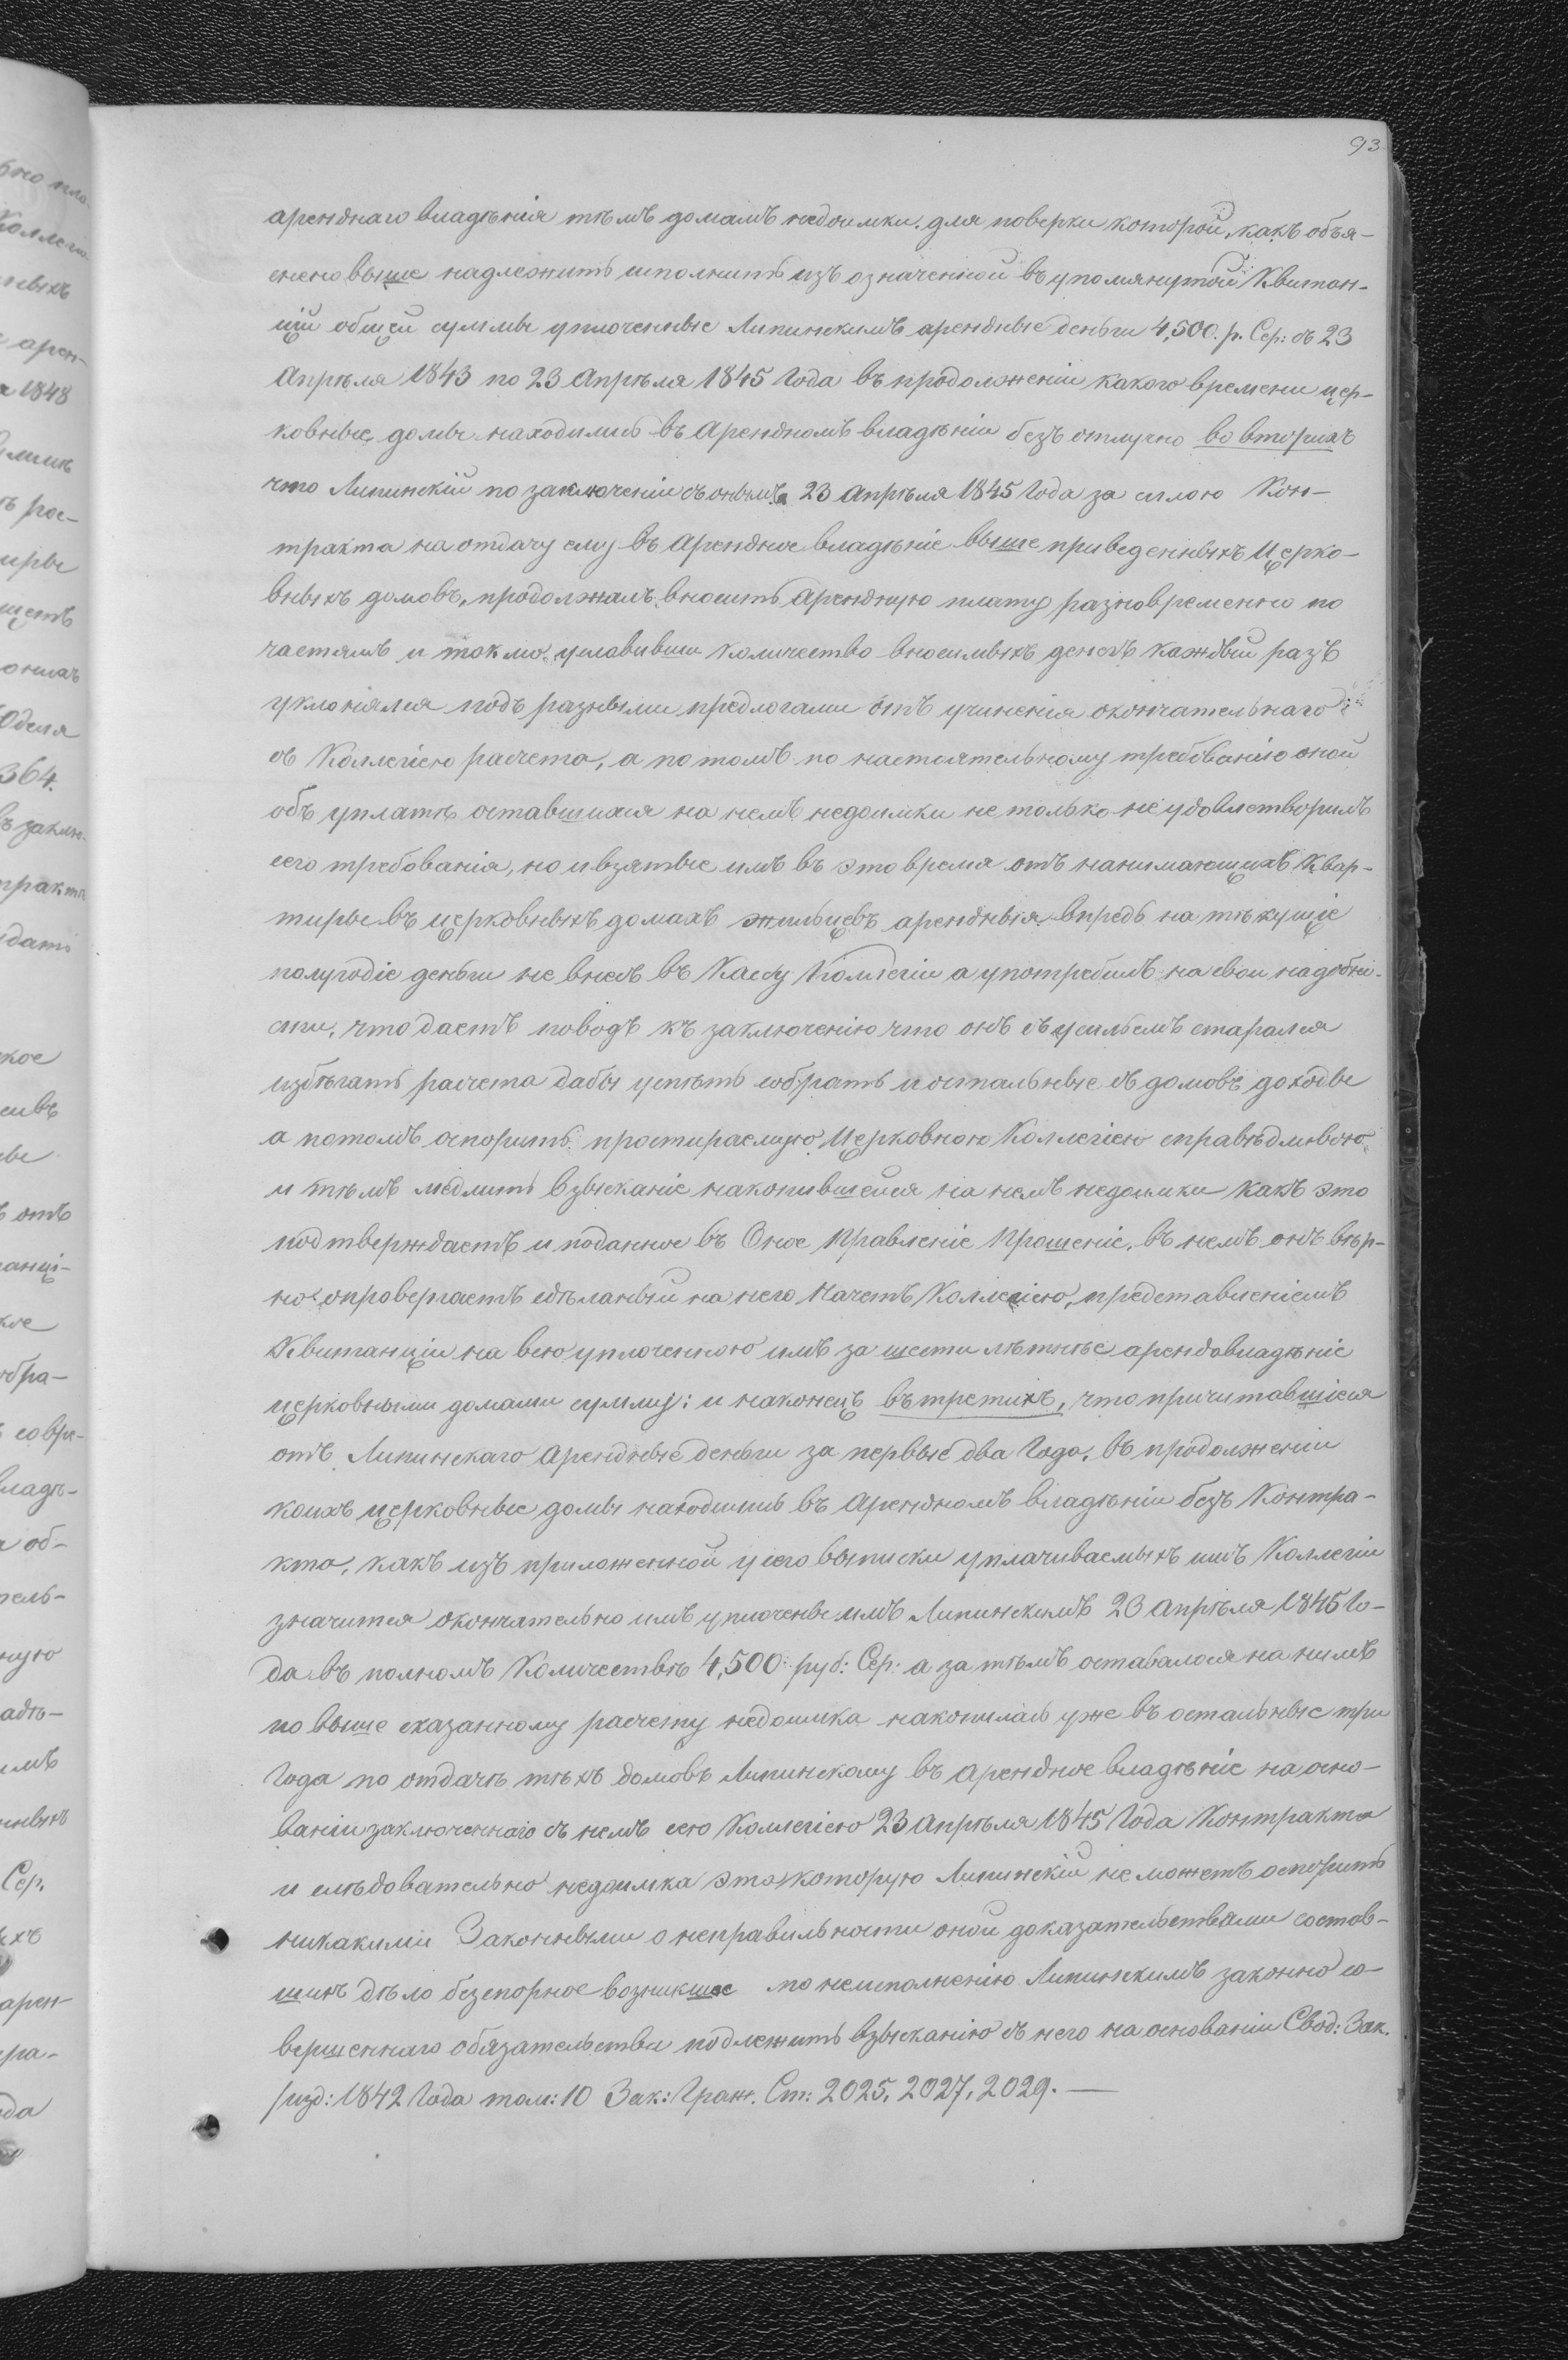 93
аренднаго владѣнія тѣмъ домамъ недоимки. для поверки которой, какъ объя-
снено выше надлежитъ исполнить изъ означенной въ упомянутой Квитан-
ціи общей суммы уплоченные Липинскимъ арендные деньги 4,500. р. Сер: съ 23
Апрѣля 1843 по 23 Апрѣля 1845 Года въ продолженіи какого времени цер-
ковные домы находились въ Арендномъ владѣніи безъ отлучно во вторихъ
что Липинскій по заключеніи съ онымъ 23 Апрѣля 1845 Года за силою Кон-
тракта на отдачу ему въ Арендное владѣніе выше приведенныхъ Церко-
вныхъ домовъ, продолжалъ вносить Арендную плату разновременно по
частямъ и токмо условивши Количество вносимыхъ денегъ каждый разъ
уклонялся подъ разными предлогами отъ учиненія окончательнаго
съ Коллегіею расчета, а потомъ по настоятельному требованію оной
объ уплатѣ оставшихся на немъ недоимки не только не удовлетворилъ
сего требованія, но и взятые имъ въ это время отъ нанимающихъ Квар-
тиры въ церковныхъ домахъ жильцевъ арендныя впредь на текущіе
полугодіе деньги не внесъ въ Кассу Коллегіи а употребилъ на свои надобно-
сти, что даетъ поводъ къ заключенію что онъ съ усильемъ старался
избѣгать расчета дабы успѣть собрать и остальные съ домовъ доходы
а потомъ оспорить простираемую Церковною Коллегіею справѣдливою
и тѣмъ медлить взысканіе накопившейся на немъ недоимки какъ это
подтверждаетъ и поданное въ Оное Правленіе Прошеніе, въ немъ онъ вѣр-
но опровергаетъ сдѣланный на него Начетъ Коллегіею, представленіемъ
Квитанціи на всю уплоченною имъ за шести лѣтнѣе арендовладѣніе
церковными домами сумму: и наконецъ въ третихъ, что причитавшіеся
отъ Липинскаго Арендные деньги за первые два Года, въ продолженіи
коихъ церковные домы находились въ Арендномъ владѣніи безъ Контра-
кта, какъ изъ приложенной у сего выписки уплачиваемыхъ имъ Коллегіи
значится окончательно имъ уплочены имъ Липинскимъ 23 Апрѣля 1845 Го-
да въ полномъ Количествѣ 4,500 руб: Сер: а за тѣмъ оставалося на нимъ
по выше сказанному расчету недоимка накопилась уже въ остальные три
Года по отдачѣ тѣхъ домовъ Липинскому въ Арендное владѣніе на осно-
ваніи заключеннаго съ немъ сею Коллегіею 23 Апрѣля 1845 Года Контракта
и слѣдовательно недоимка эта которую Липинскій не можетъ оспорить
никакими Законными о неправильности оной доказательствами состав-
шихъ дѣло безспорное возникшее по неисполненію Липинскимъ законно со-
вершеннаго обязательства подлежитъ взысканію съ него на основаніи Свод: Зак.
/изд: 1842 Года том: 10 Зак: Граж. Ст: 2025, 2027, 2029. —